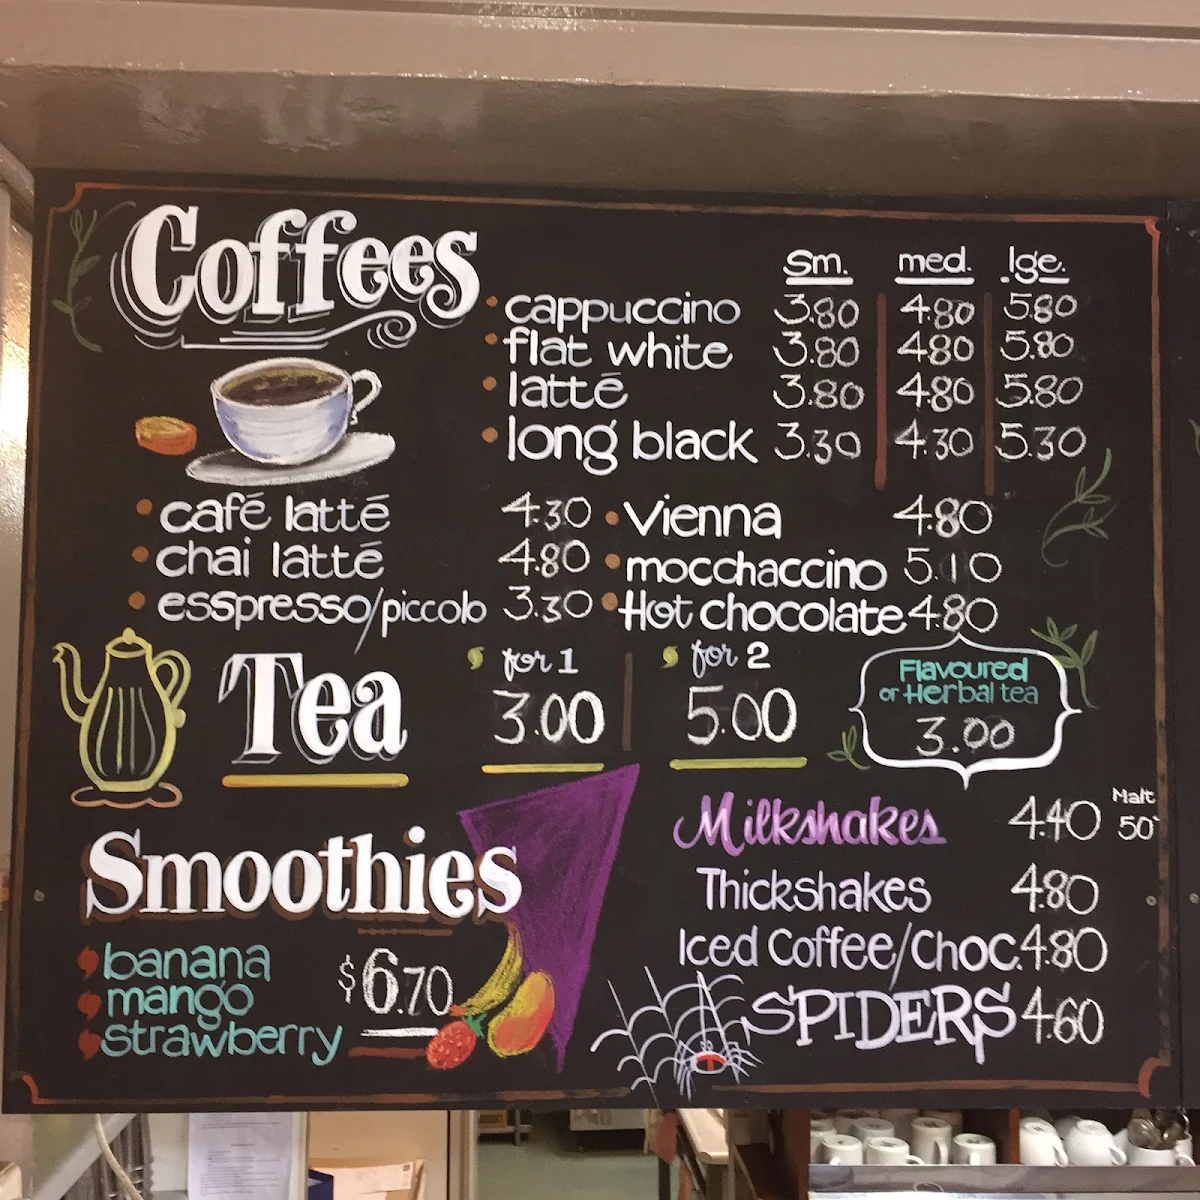 Coffees
Sm. med. lge.
cappuccino 3.80 4.80 5.80
flat white 3.80 4.80 5.80
latté 3.80 4.80 5.80
long black 3.30 4.30 5.30
café latté 4.30
chai latté 4.80
esspresso/piccolo 3.30
Vienna 4.80
mocchaccino 5.10
Hot chocolate 4.80
Tea
for 1
3.00
for 2
5.00
Flavoured
or Herbal tea
3.00
Smoothies
banana
mango
strawberry
$6.70
Milkshakes 4.40
Malt
50
Thickshakes 4.80
Iced Coffee/Choc. 4.80
SPIDERS 4.60